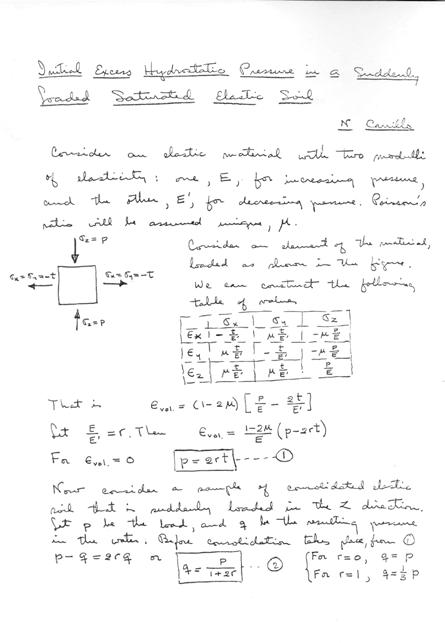 Initial Excess Hydrostatic Pressure in a Suddenly
Loaded Saturated Elastic Soil
N Carrillo
Consider an elastic material with two modulli
of elasticity: one, E, for increasing pressure,
and the other, E', for decreasing pressure. Poisson's
ratio will be assumed unique, μ.
σz = p
σx = σy = -t
σx = σy = -t
σz = p
Consider an element of the material,
loaded as shown in the figure.
We can construct the following
table of values
σx σy σz
εx -t/E' μ t/E' -μ p/E
εy μ t/E' -t/E' -μ p/E
εz μ t/E' μ t/E' p/E
That is εvol. = (1-2μ) [p/E - 2t/E']
Let E/E' = r. Then εvol. = (1-2μ)/E (p-2rt)
For εvol. = 0 p = 2rt ----- ①
Now consider a sample of consolidated elastic
soil that is suddenly loaded in the Z direction.
Let p be the load, and q be the resulting pressure
in the water. Before consolidation takes place, from ①
p - q = 2rq or q = p/(1+2r) --- ② {For r=0, q = p
{For r=1, q = 1/3 p